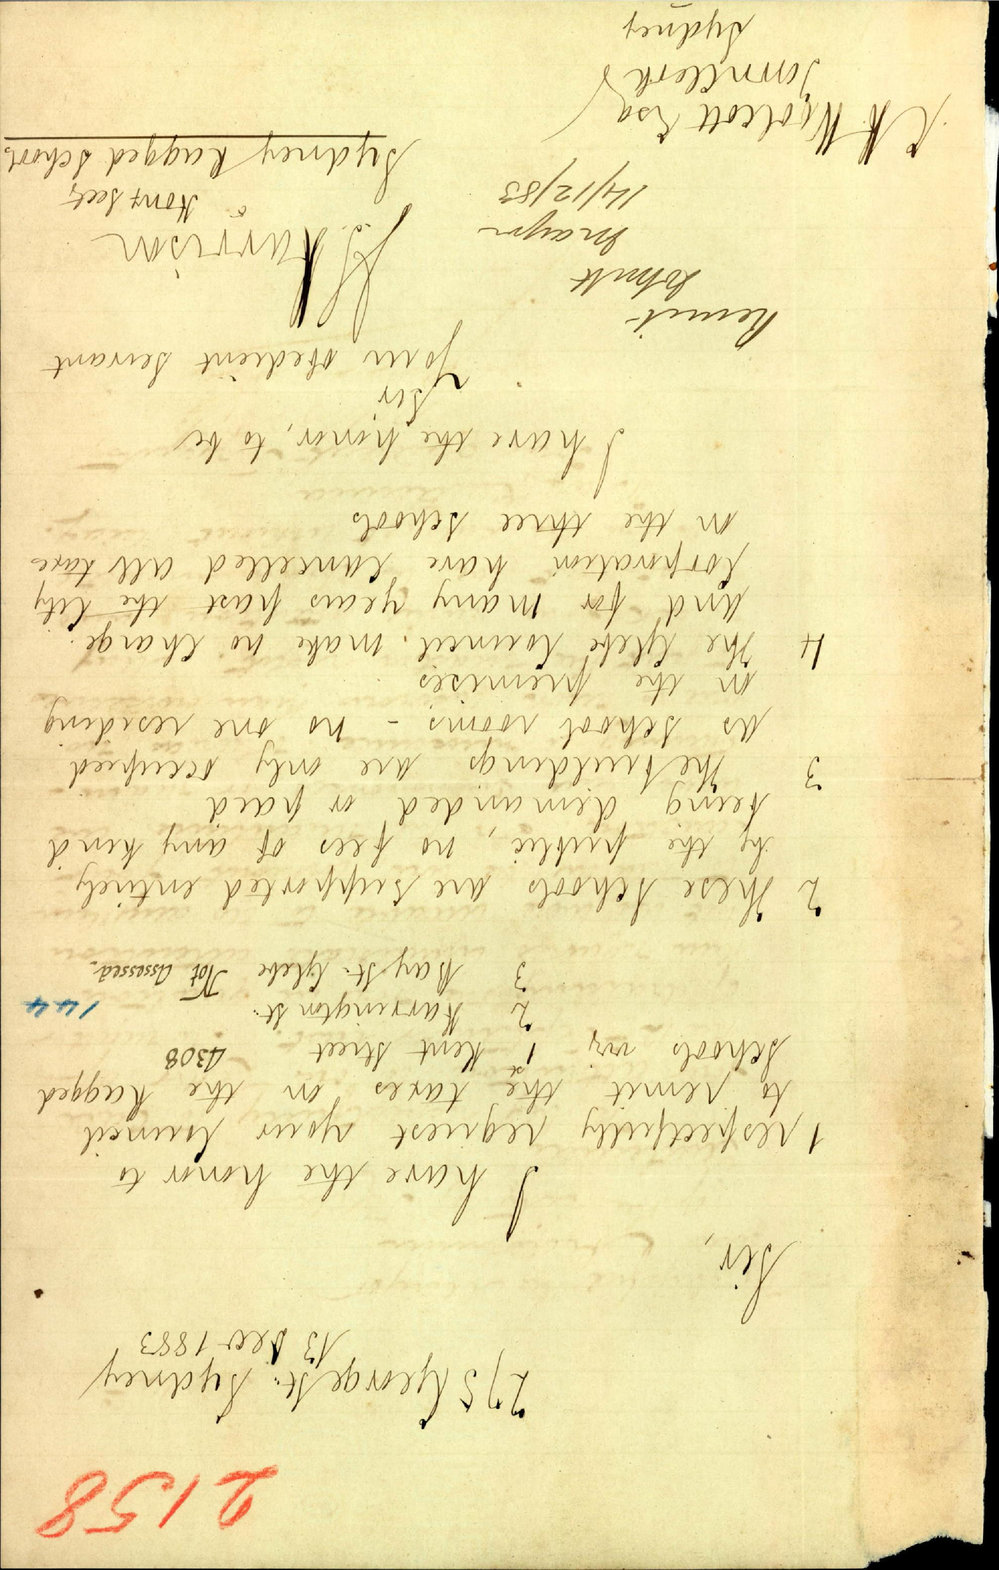 2158
275 George St. Sydney
13 Dec 1883
Sir,
I have the honor to
1 respectfully request your Council
to remit the taxes on the Ragged
Schools viz 1st Kent Street 4308
2 Harrington St. 144
3 Bay St. Glebe Not Assessed.
2 These Schools are supported entirely
by the public, no fees of any kind
being demanded or paid
3 The buildings are only occupied
as School rooms - no one residing
on the premises
4 The Glebe Council. make no charge.
and for many years past the City
Corporation have cancelled all taxes
on the three schools
I have the honor, to be
Sir
Your obedient Servant
J. S. Harrison
Hony Secy
Sydney Ragged Schools
Remit
Mayor
14/12/83
C H Woolcott Esq
Town Clerk
Sydney